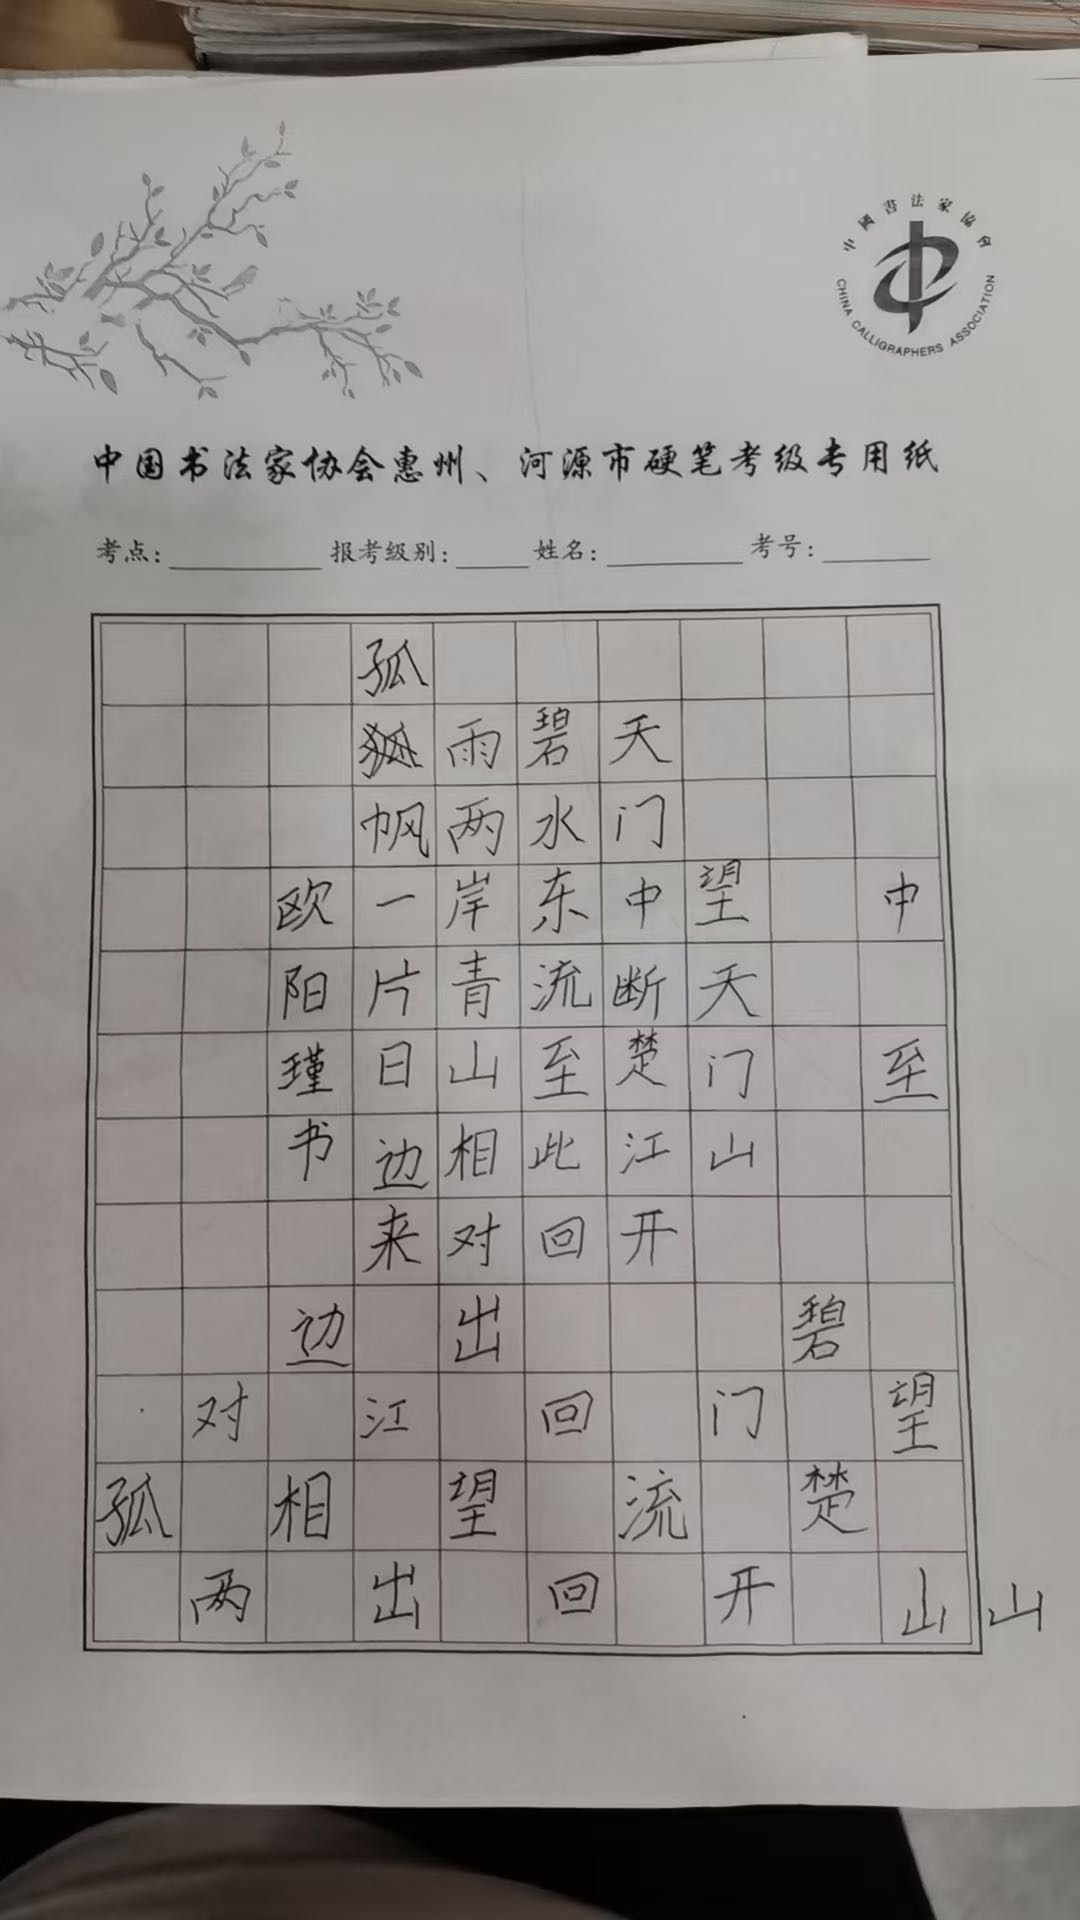 中國書法家協會
CHINA CALLIGRAPHERS ASSOCIATION
中国书法家协会惠州、河源市硬笔考级专用纸
考点: 报考级别: 姓名: 考号:
中至
望天门山
天门中断楚江开
碧水东流至此回
雨两岸青山相对出
孤帆一片日边来
欧阳瑾书
边 碧
对 江 回 门 望
孤 相 望 流 楚
两 出 回 开 山 山